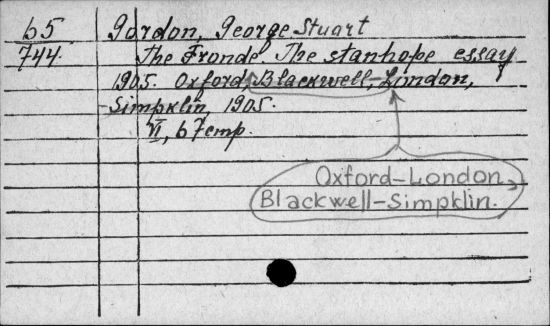 65 Gordon, George Stuart
744. The Fronde. The stanhope essay
1905. Oxford, Blackwell, London,
Simpklin, 1905.
VI, 67 cmp.
Oxford-London,
Blackwell-Simpklin.